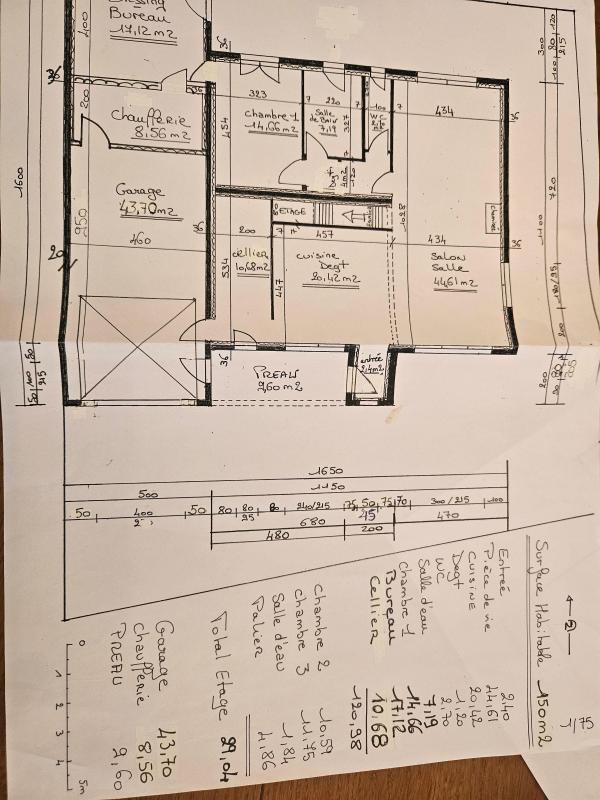 Dressing
Bureau
17,12 m2
Chaufferie
8,56 m2
Garage
43,70 m2
460
Chambre 1
14,66 m2
323
454
Salle
de Bain
7,19
220
327
WC
100
Degt
120
434
ETAGE
200
457
cellier
10,68 m2
534
447
cuisine
Degt
20,42 m2
1028
434
SALON
Salle
44,61 m2
cheminée
PREAU
9,60 m2
entrée
2,4 m2
1600
400
200
950
20
36
36
36
36
36
36
300
80
215
120
100
720
200
50 100 50
215
1650
1150
500
50 400 50 80 80 80 240/215 75 50 75 70 300/215 100
25
45
680
470
480
200
1/75
Surface Habitable 150 m2
Entrée 2,40
Pièce de vie 44,61
CUISINE 20,42
Degt 1,20
WC 2,70
Salle d'eau 7,19
Chambre 1 14,66
Bureau 17,12
Cellier 10,68
120,98
Chambre 2 10,59
Chambre 3 11,75
Salle d'eau 1,84
Palier 4,86
Total Etage 29,04
Garage 43,70
chaufferie 8,56
PREAU 9,60
0 1 2 3 4 5m